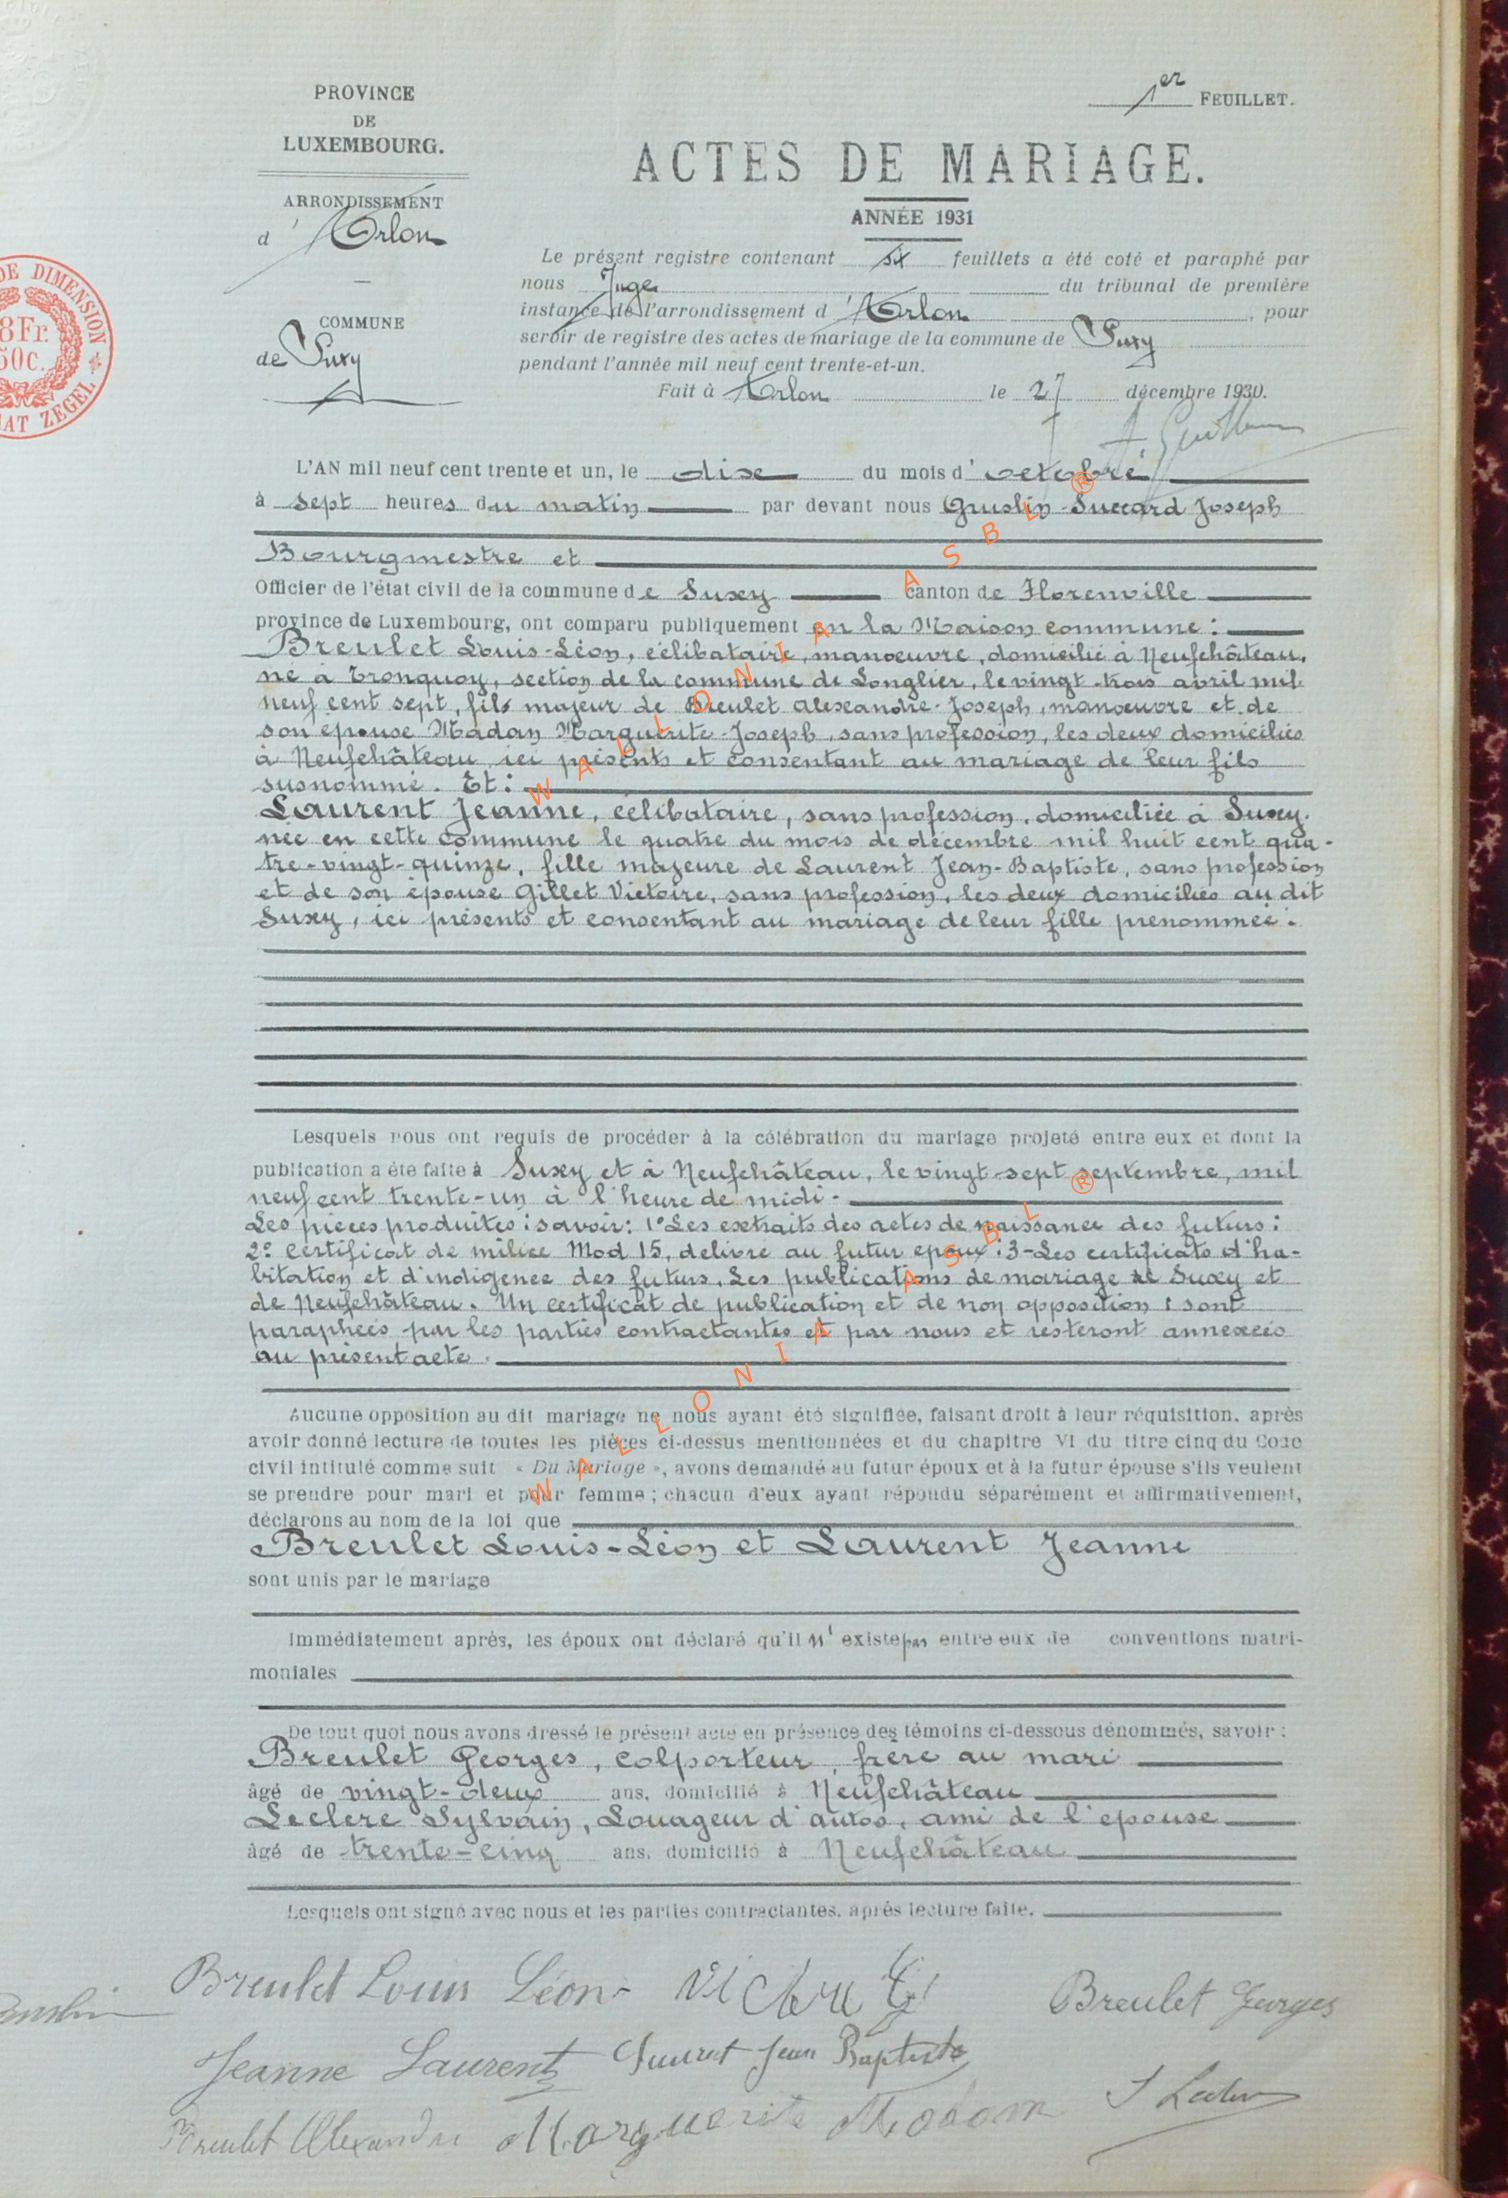 PROVINCE
DE
LUXEMBOURG.
ARRONDISSEMENT
d'Arlon
COMMUNE
de Suxy
DE DIMENSION
8Fr.
50c.
ZEGEL
1er FEUILLET.
ACTES DE MARIAGE.
ANNÉE 1931
Le présent registre contenant six feuillets a été coté et paraphé par
nous Juge du tribunal de première
instance de l'arrondissement d'Arlon, pour
servir de registre des actes de mariage de la commune de Suxy
pendant l'année mil neuf cent trente-et-un.
Fait à Arlon le 27 décembre 1930.
L'AN mil neuf cent trente et un, le dix du mois d'octobre
à sept heures du matin par devant nous Gruslin-Suzard Joseph
Bourgmestre et
Officier de l'état civil de la commune de Suxy canton de Florenville
province de Luxembourg, ont comparu publiquement en la Maison commune :
Breulet Louis-Léon, célibataire, manœuvre, domicilié à Neufchâteau,
né à Tronquoy, section de la commune de Longlier, le vingt-trois avril mil
neuf cent sept, fils majeur de Breulet Alexandre-Joseph, manœuvre et de
son épouse Madan Marguerite-Joseph, sans profession, les deux domiciliés
à Neufchâteau, ici présents et consentant au mariage de leur fils
susnommé. Et :
Laurent Jeanne, célibataire, sans profession, domiciliée à Suxy.
née en cette commune le quatre du mois de décembre mil huit cent qua-
tre-vingt-quinze, fille majeure de Laurent Jean-Baptiste, sans profession
et de son épouse Gillet Victoire, sans profession, les deux domiciliés au dit
Suxy, ici présents et consentant au mariage de leur fille prénommée.
Lesquels nous ont requis de procéder à la célébration du mariage projeté entre eux et dont la
publication a été faite à Suxy et à Neufchâteau, le vingt-sept septembre, mil
neuf cent trente-un à l'heure de midi.
Les pièces produites : savoir : 1° Les extraits des actes de naissance des futurs :
2° Certificat de milice Mod 15, délivré au futur époux : 3- Les certificats d'ha-
bitation et d'indigence des futurs. Les publications de mariage de Suxy et
de Neufchâteau. Un certificat de publication et de non opposition : sont
paraphées par les parties contractantes et par nous et resteront annexées
au présent acte.
Aucune opposition au dit mariage ne nous ayant été signifiée, faisant droit à leur réquisition, après
avoir donné lecture de toutes les pièces ci-dessus mentionnées et du chapitre VI du titre cinq du Code
civil intitulé comme suit « Du Mariage », avons demandé au futur époux et à la futur épouse s'ils veulent
se prendre pour mari et pour femme ; chacun d'eux ayant répondu séparément et affirmativement,
déclarons au nom de la loi que
Breulet Louis-Léon et Laurent Jeanne
sont unis par le mariage
Immédiatement après, les époux ont déclaré qu'il n'existe pas entre eux de conventions matri-
moniales
De tout quoi nous avons dressé le présent acte en présence des témoins ci-dessous dénommés, savoir :
Breulet Georges, colporteur, frère au mari
âgé de vingt-deux ans, domicilié à Neufchâteau
Leclere Sylvain, Louageur d'autos, ami de l'épouse
âgé de trente-cinq ans, domicilié à Neufchâteau
Lesquels ont signé avec nous et les parties contractantes, après lecture faite.
Breulet Louis Léon Breulet Georges
Jeanne Laurent Laurent Jean Baptiste
Breulet Alexandre Marguerite Madam
WALLONIA ASBL ®
WALLONIA ASBL ®